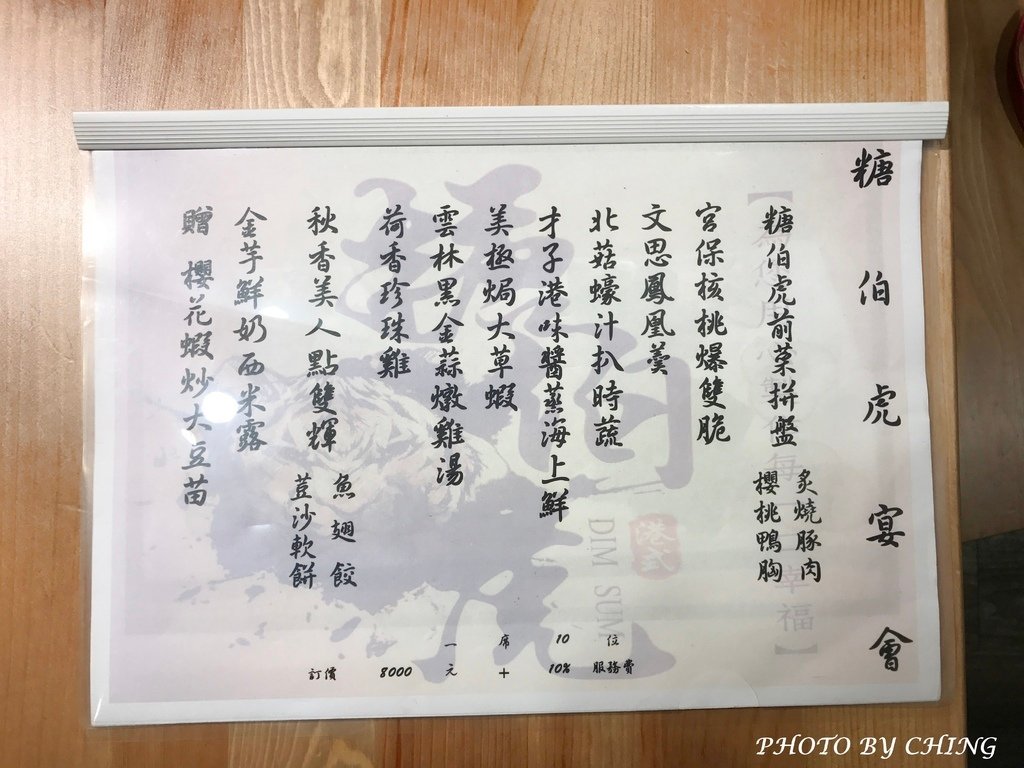 糖伯虎宴會
糖伯虎前菜拼盤
炙燒豚肉
櫻桃鴨胸
宮保核桃爆雙脆
文思鳳凰羹
北菇蠔汁扒時蔬
才子港味醬蒸海上鮮
美極焗大草蝦
雲林黑金蒜燉雞湯
荷香珍珠雞
秋香美人點雙輝
魚翅餃
荳沙軟餅
金芋鮮奶西米露
贈 櫻花蝦炒大豆苗
一席10位
訂價8000元+10%服務費
糖伯虎
港式
DIM SUM
幸福】
PHOTO BY CHING